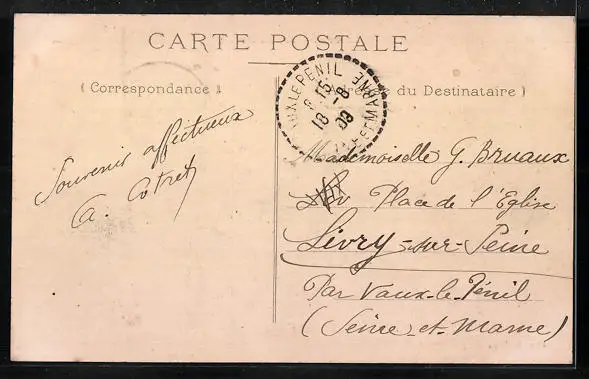 CARTE POSTALE
( Correspondance )
du Destinataire )
VAUX LE PENIL
Sⁿᵉ ET MARNE
15
8
09
Souvenir affectueux
A. Cotret
Mademoiselle G. Bruaux
Place de l'Eglise
Livry-sur-Seine
Par Vaux-le-Pénil
(Seine-et-Marne)